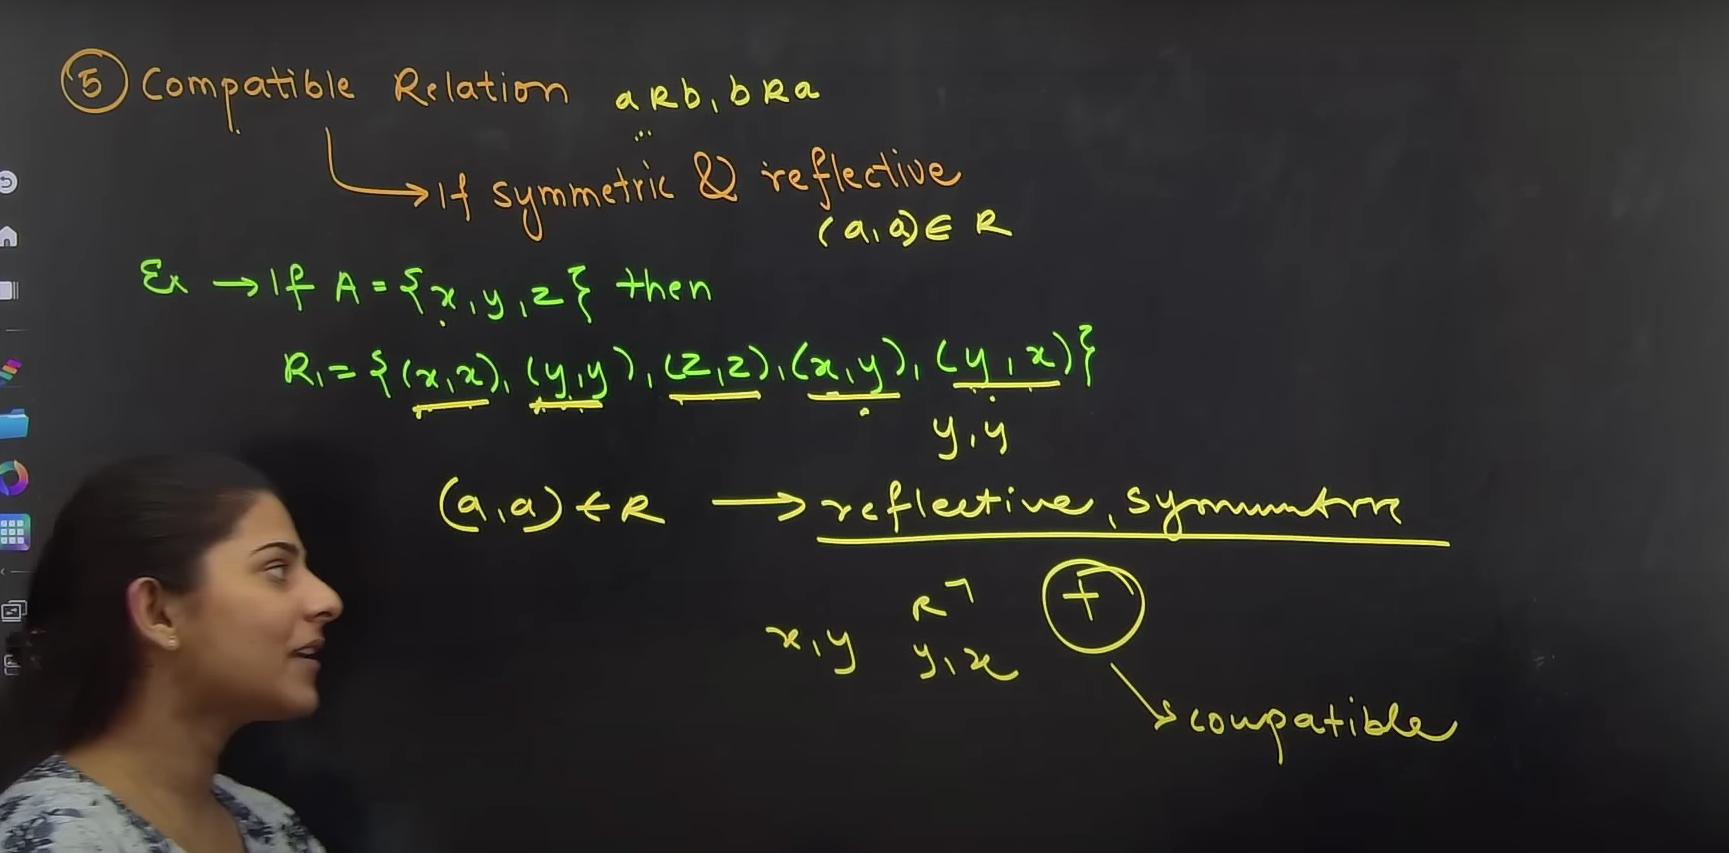 ⑤ Compatible Relation aRb, bRa
If symmetric & reflective
(a,a) ∈ R
Ex → If A = {x, y, z} then
R₁ = {(x,x), (y,y), (z,z), (x,y), (y,x)}
y,y
(a,a) ∈ R → reflective, symmetric
R +
x,y y,x
compatible